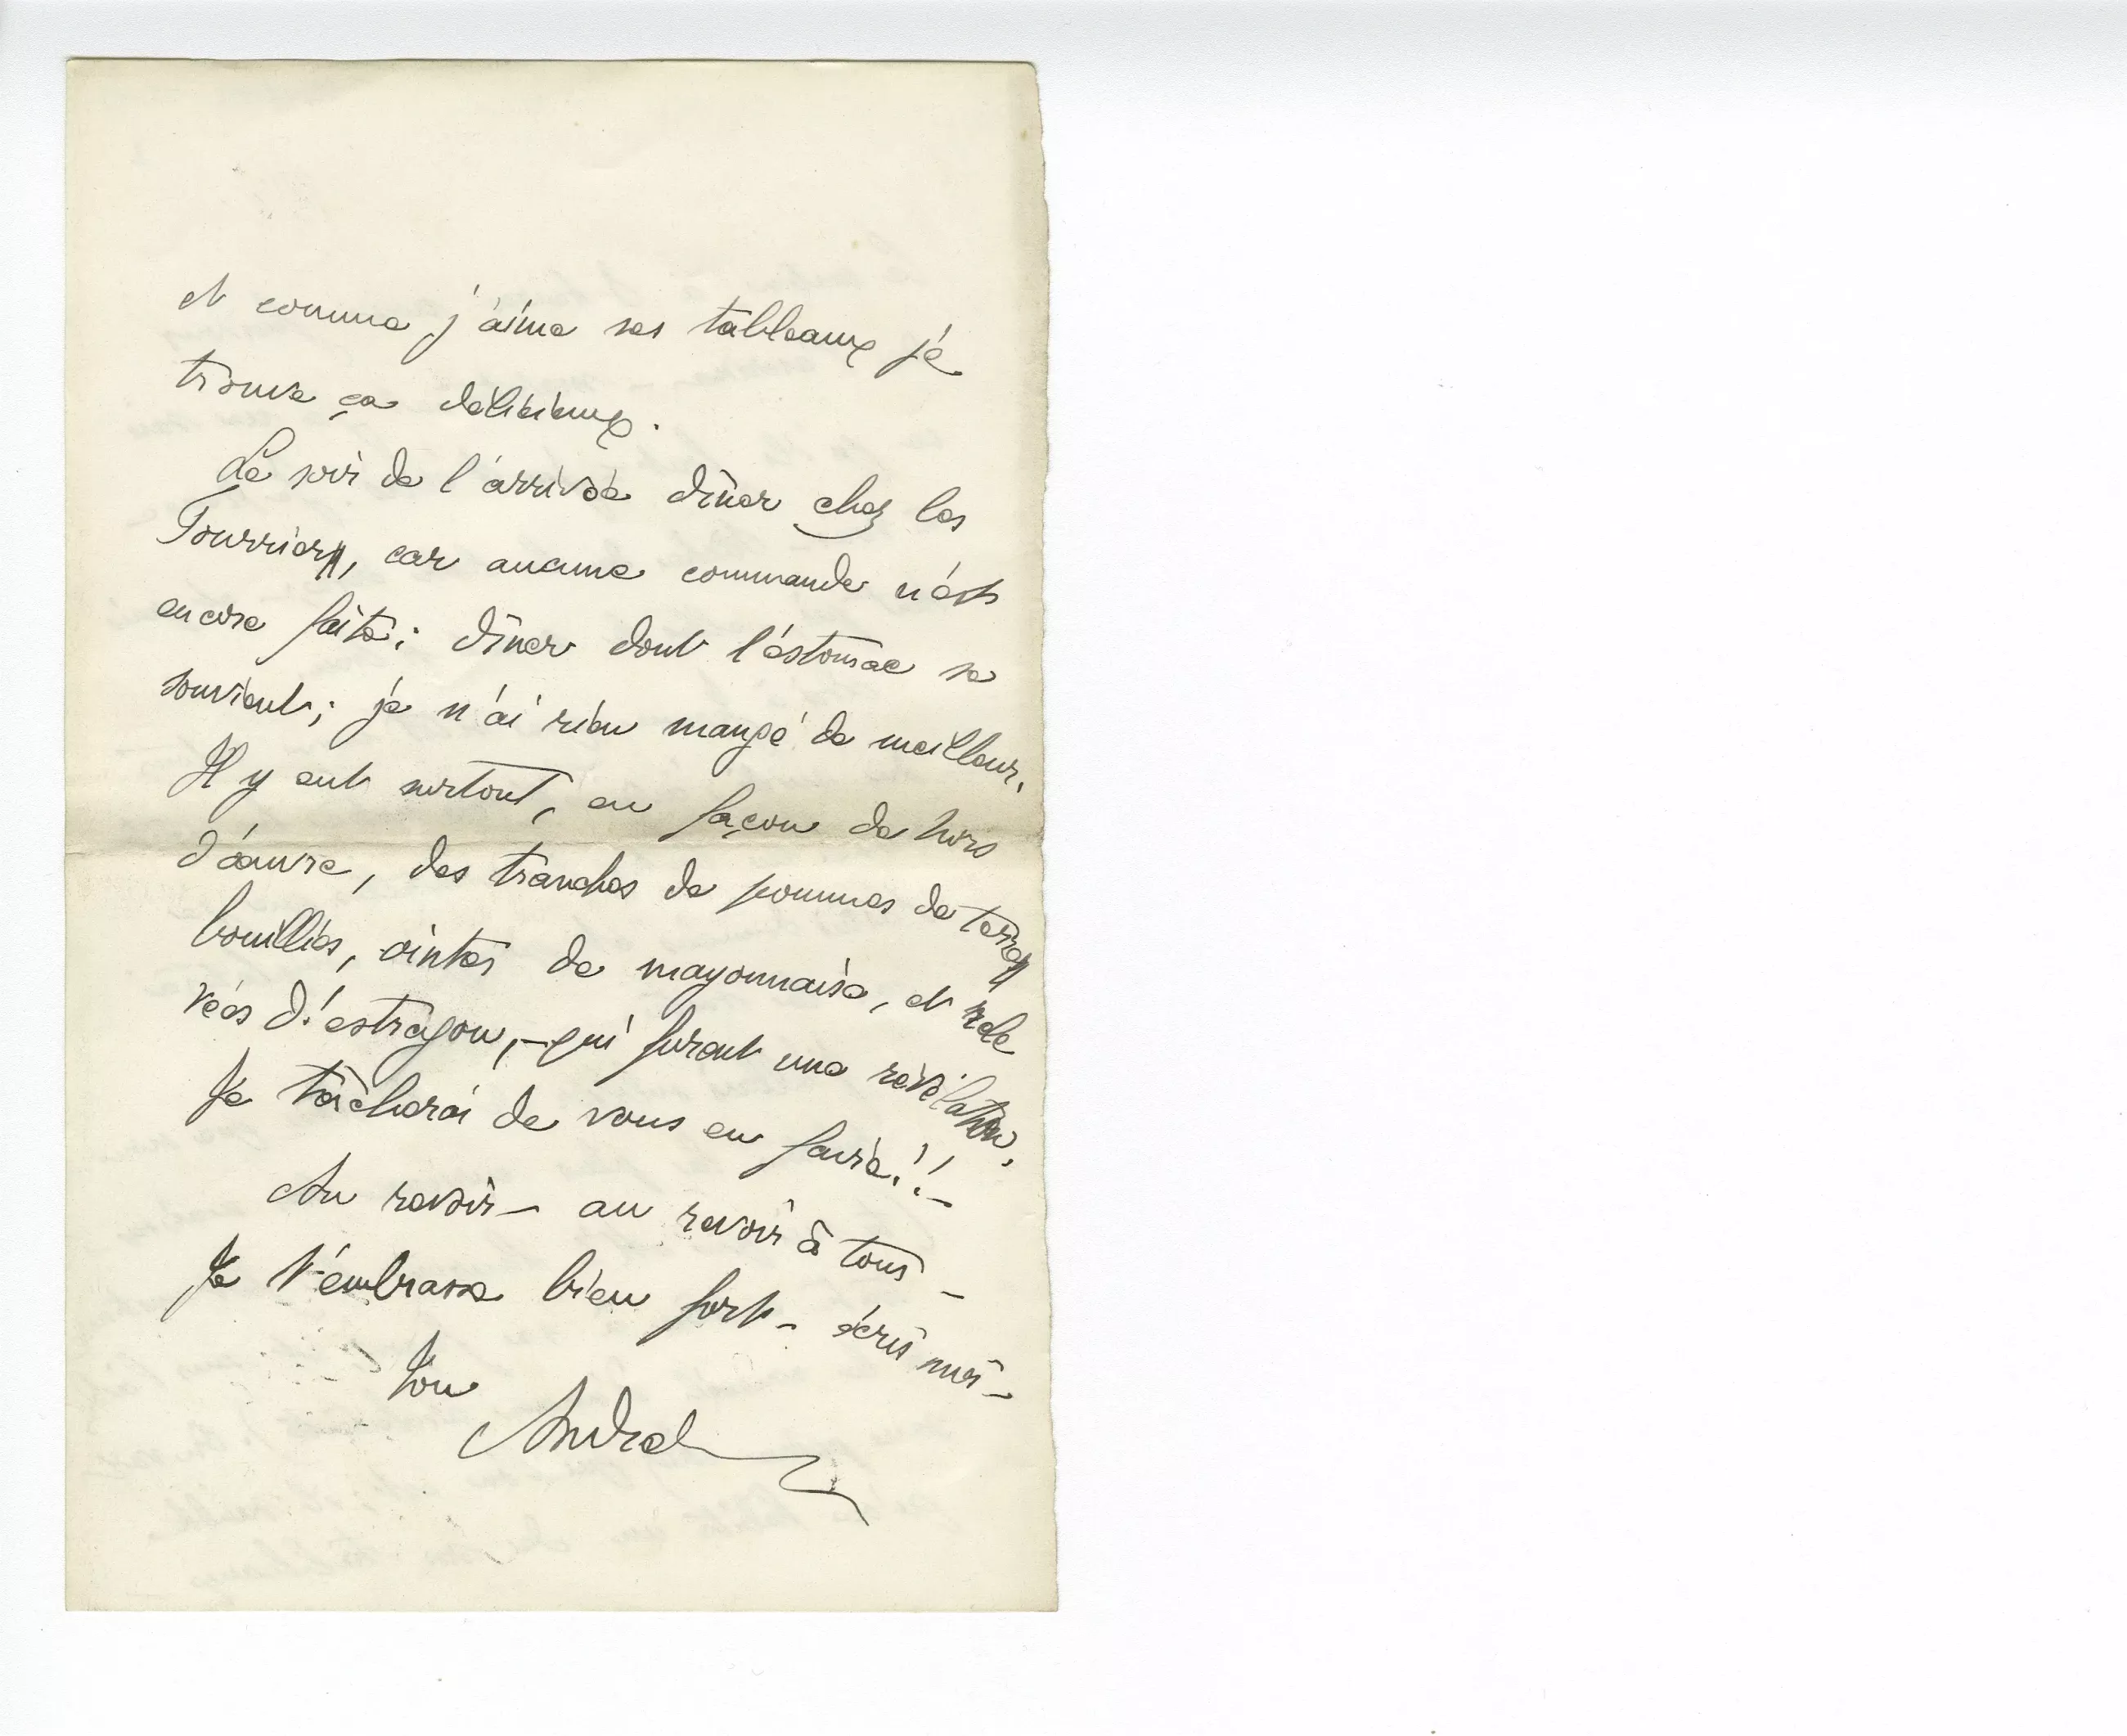 et comme j'aime ses tableaux je
trouve ça délicieux.
Le soir de l'arrivée dîner chez les
car aucune commande n'est
encore faite ; dîner dont l'estomac se
souvient ; je n'ai rien mangé de meilleur.
Il y eut surtout, en façon de hors
d'œuvre, des tranches de pommes de terre
bouillies, ointes de mayonnaise, et rele
vées d'estragon, – qui furent une révélation.
Je tâcherai de vous en faire !! –
Au revoir – au revoir à tous –
Je t'embrasse bien fort – écris moi –
Ton
André